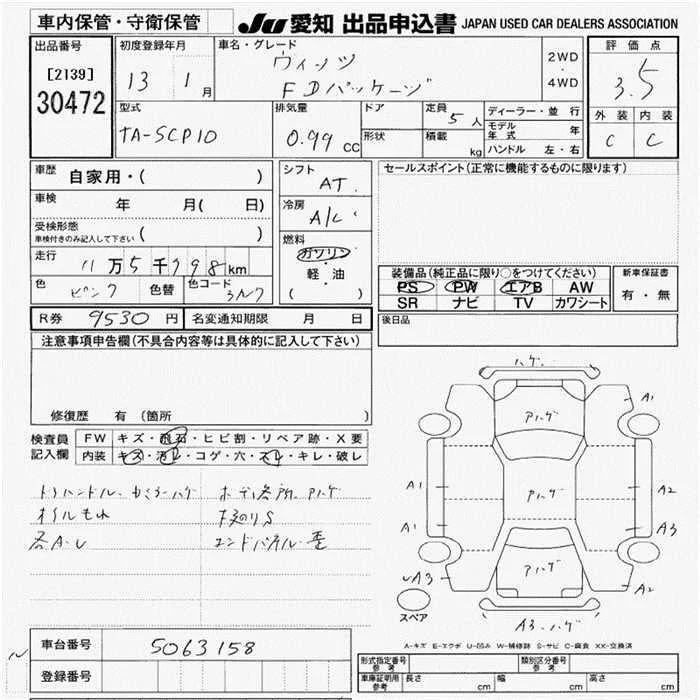 車内保管・守衛保管 JU 愛知 出品申込書 JAPAN USED CAR DEALERS ASSOCIATION
出品番号 [2139] 30472
初度登録年月 13 1月
車名・グレード ヴィッツ
FDパッケージ
2WD・4WD
評価点 3.5
外装 内装
C C
型式 TA-SCP10
排気量 0.99 CC
ドア
形状
定員 5人
積載 kg
ディーラー・並行
モデル年式 年
ハンドル 左・右
車歴 自家用・( )
車検 年 月( 日)
受検形態
車検付きのみ記入して下さい ( )
走行 11万5千798km
色 ピンク 色替 色コード 3N7
シフト AT
冷房 A/C
燃料 ガソリン・軽・油
( )
セールスポイント(正常に機能するものに限ります)
装備品(純正品に限り○をつけてください)
PS PW エアB AW
SR ナビ TV カワシート
新車保証書
有・無
R券 9530円 名変通知期限 月 日
後日品
注意事項申告欄(不具合内容等は具体的に記入して下さい)
修復歴 有(箇所 )
検査員記入欄
FW キズ・飛石・ヒビ割・リペア跡・X要
内装 キズ・汚レ・コゲ・穴・スレ・キレ・破レ
ハンドル ハゲ ボディ各所 Aハゲ
オイルもれ S
各A・U エンドパネル 歪
ハゲ
Aハゲ
Aハゲ
Aハゲ
A1
A1 A2
A1 A3
UA3 A2
スペア
A3 ハゲ
A-キズ E-エクボ U-凹み W-補修跡 S-サビ C-腐食 XX-交換済
車台番号 5063158
登録番号
型式指定番号 参考
類別区分番号 参考
車庫証明用 参考 長さ cm 幅 cm 高さ cm